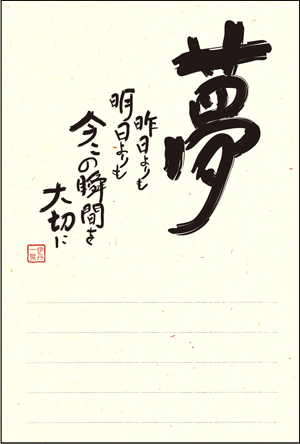 夢
昨日よりも
明日よりも
今この瞬間を
大切に